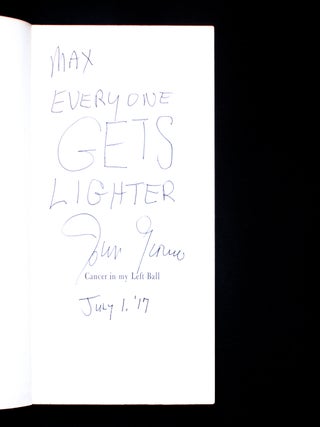 MAX
EVERYONE
GETS
LIGHTER
John Giorno
Cancer in my Left Ball
July 1. '17